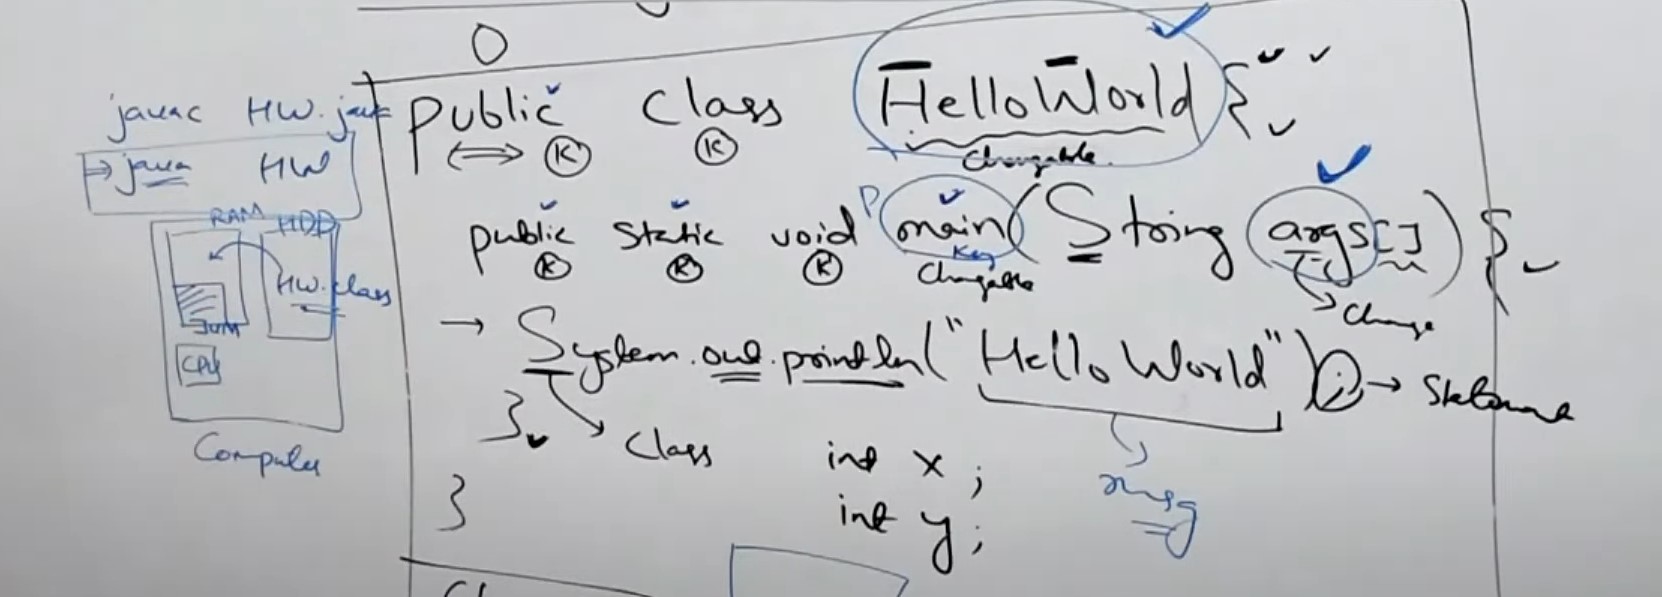 O
javac HW.java
java HW
RAM HDD
HW.class
JVM
CPU
Computer
Public Class HelloWorld {
K K
Changable.
public static void main(String args[]) {
K K K Key
Changable
Change
→ System.out.println("Hello World"); →
} Class
msg
}
int x ;
int y ;